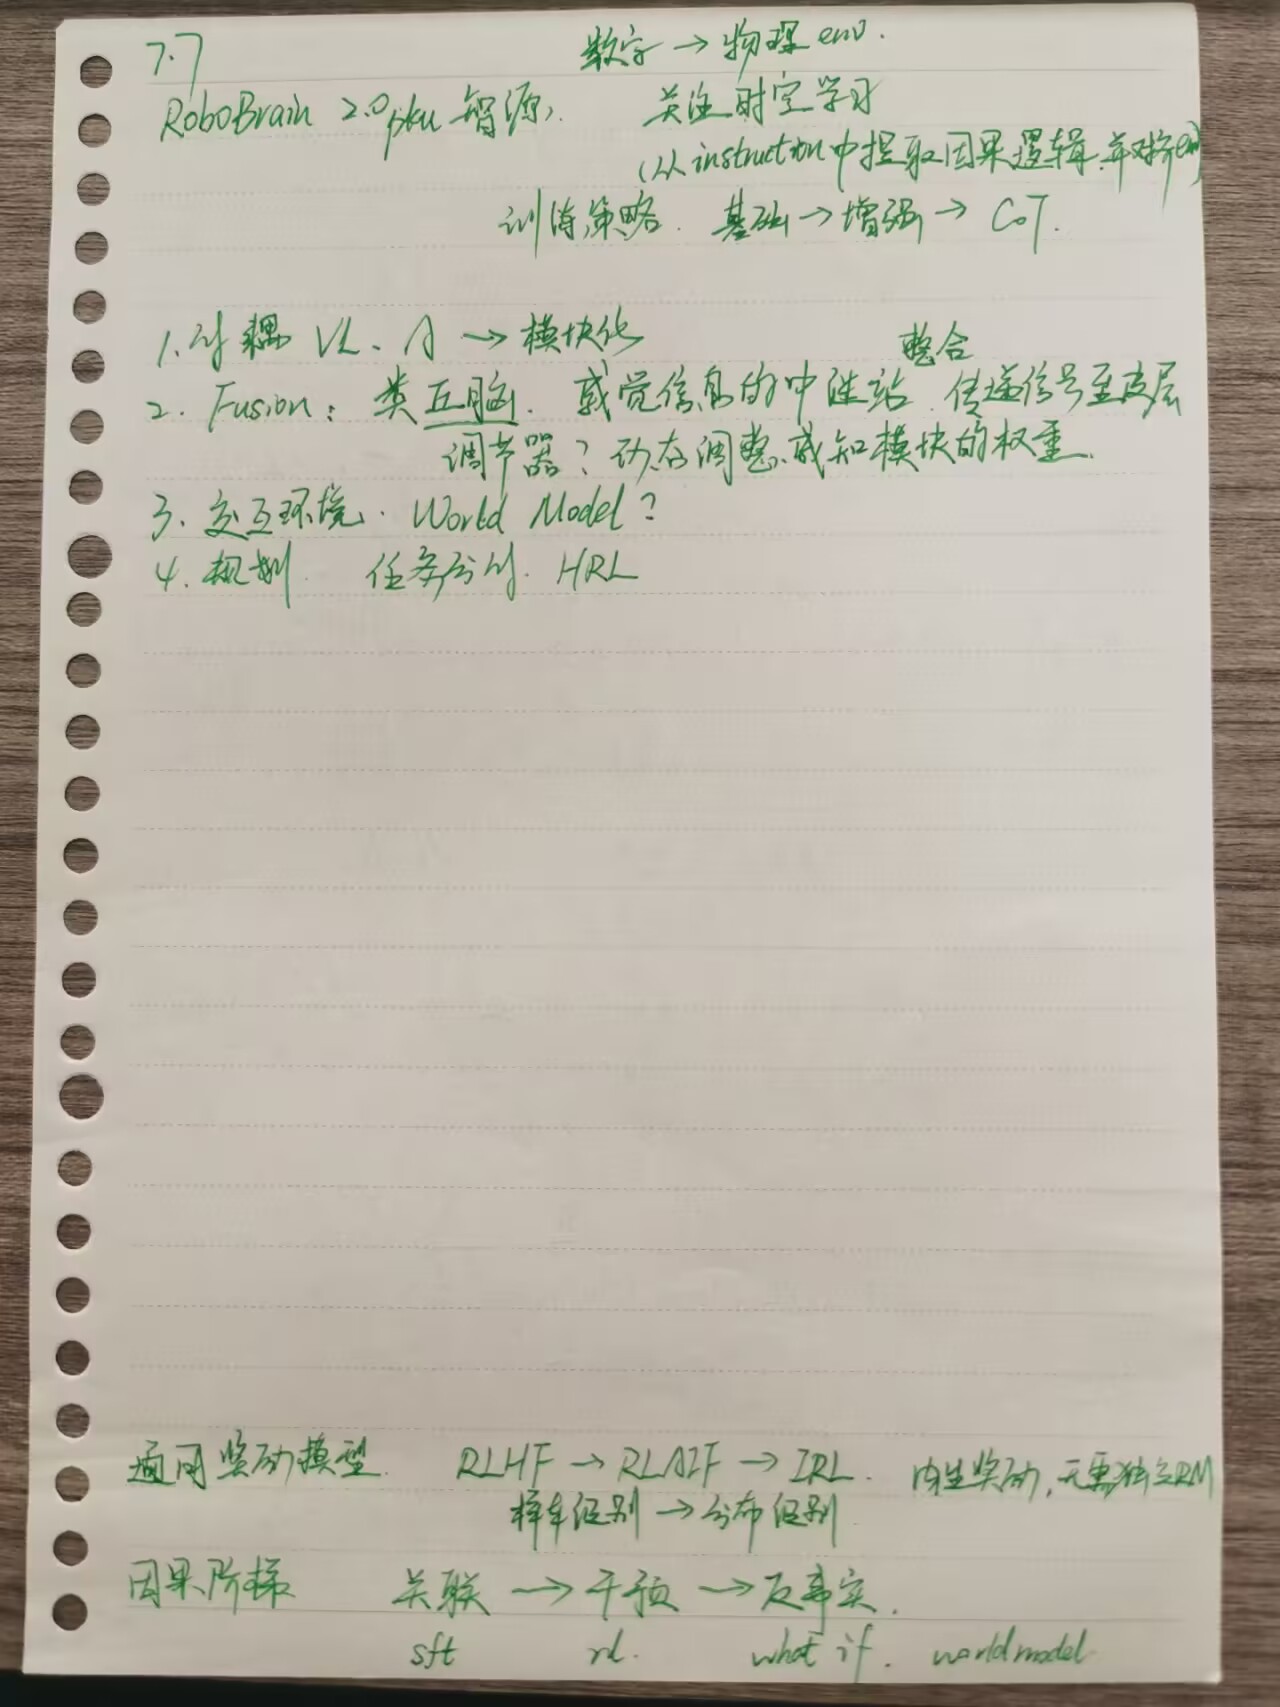 7.7 数字 → 物理 env.
RoboBrain 2.0 pku 智源. 关注时空学习
(从 instruction 中提取因果逻辑,并对齐 env)
训练策略. 基础 → 增强 → CoT.
1. 解耦 VL、A → 模块化
整合
2. Fusion: 类丘脑. 感觉信息的中继站. 传递信号至皮层
调节器? 动态调整感知模块的权重.
3. 交互环境. World Model?
4. 规划. 任务分解. HRL
通用奖励模型. RLHF → RLAIF → IRL. 内生奖励,无需独立RM
样本级别 → 分布级别
因果阶梯 关联 → 干预 → 反事实.
sft rl. what if. world model.